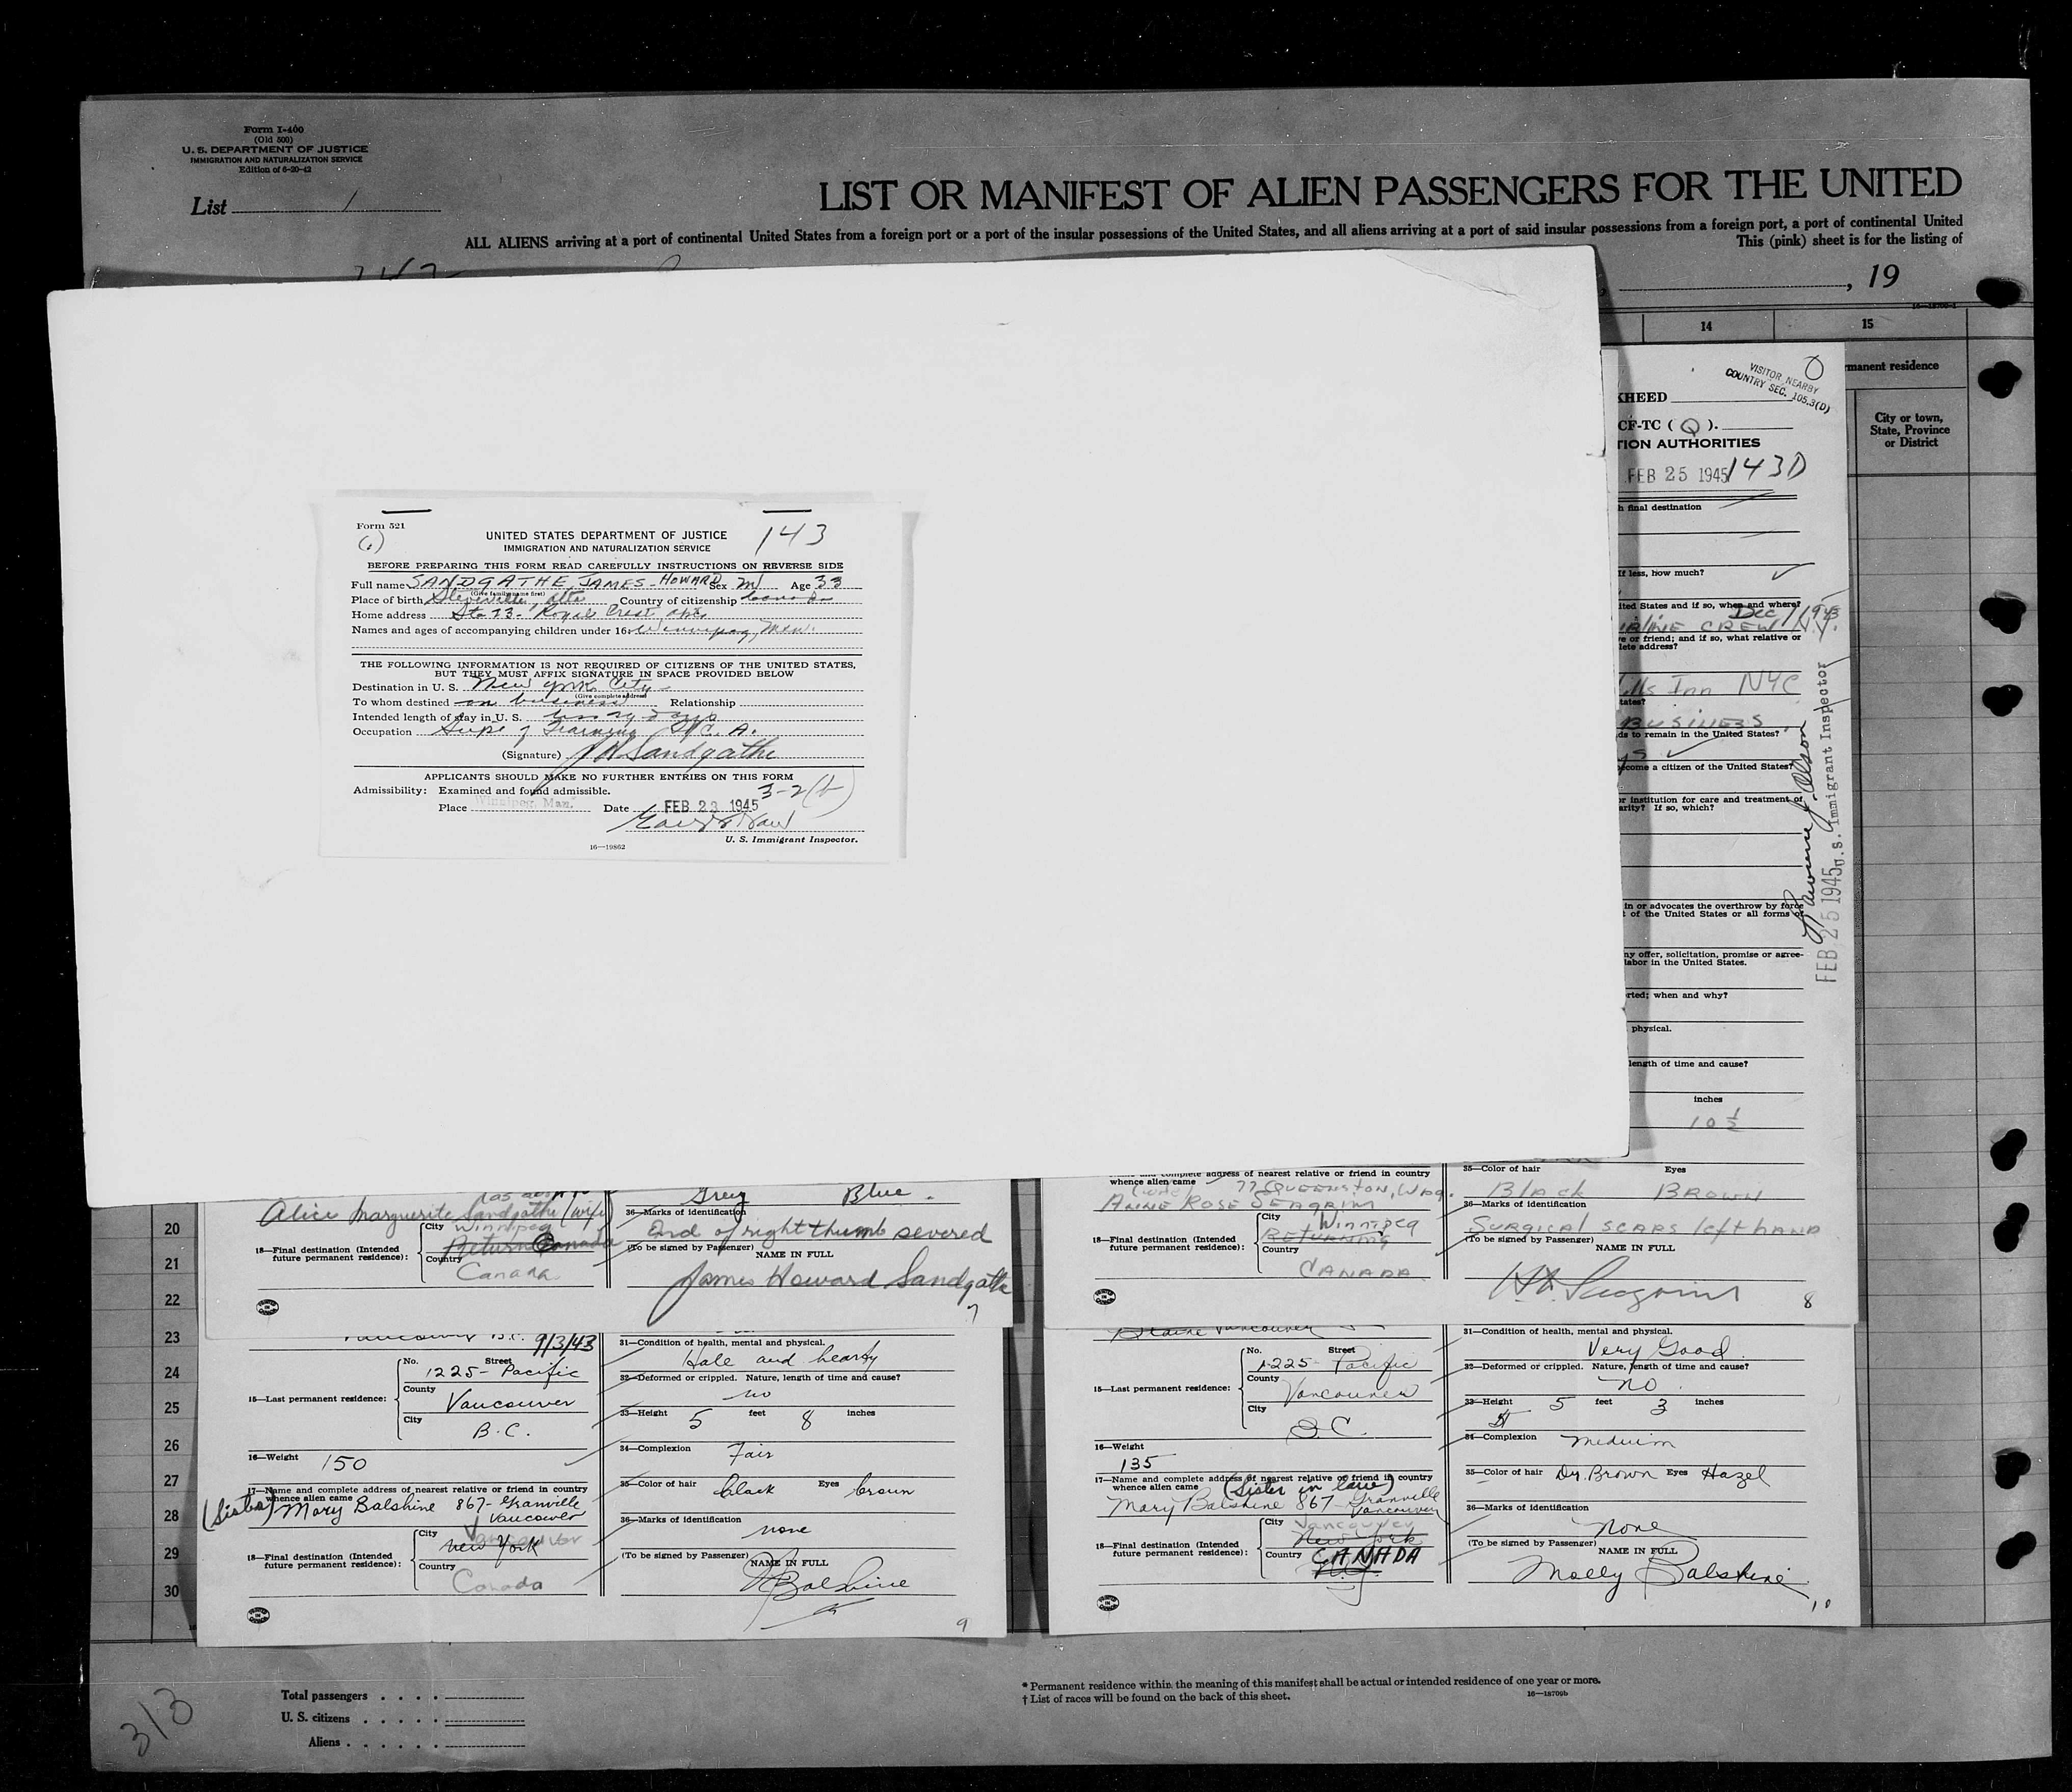 Form I-400
(Old 500)
U. S. DEPARTMENT OF JUSTICE
IMMIGRATION AND NATURALIZATION SERVICE
Edition of 6-20-42
List 1
LIST OR MANIFEST OF ALIEN PASSENGERS FOR THE UNITED
ALL ALIENS arriving at a port of continental United States from a foreign port or a port of the insular possessions of the United States, and all aliens arriving at a port of said insular possessions from a foreign port, a port of continental United
This (pink) sheet is for the listing of
, 19
14 15
manent residence
City or town,
State, Province
or District
VISITOR NEARBY
COUNTRY SEC. 105.3(D)
KHEED
CF-TC ( Q ).
TION AUTHORITIES
FEB 25 1945 143D
h final destination
If less, how much?
ited States and if so, when and where?
Dec 1943
IRLINE CREW N.Y.
e or friend; and if so, what relative or
lete address?
lls Inn NYC
tates?
BUSINESS
ds to remain in the United States?
ecome a citizen of the United States?
or institution for care and treatment of
arity? If so, which?
in or advocates the overthrow by force
t of the United States or all forms of
ny offer, solicitation, promise or agree-
labor in the United States.
rted; when and why?
physical.
length of time and cause?
inches
10 ½
FEB 25 1945 U.S. Immigrant Inspector
Form 521
143
UNITED STATES DEPARTMENT OF JUSTICE
IMMIGRATION AND NATURALIZATION SERVICE
BEFORE PREPARING THIS FORM READ CAREFULLY INSTRUCTIONS ON REVERSE SIDE
Full name SANDGATHE, JAMES - HOWARD Sex M Age 33
(Give family name first)
Place of birth Steveville, Alta Country of citizenship Canada
Home address Ste 23 Royal Crest apts,
Names and ages of accompanying children under 16: Winnipeg, Man.
THE FOLLOWING INFORMATION IS NOT REQUIRED OF CITIZENS OF THE UNITED STATES,
BUT THEY MUST AFFIX SIGNATURE IN SPACE PROVIDED BELOW
Destination in U. S. New York City
(Give complete address)
To whom destined on business Relationship
Intended length of stay in U. S.
Occupation Supt of Training T.C.A.
(Signature) J H Sandgathe
APPLICANTS SHOULD MAKE NO FURTHER ENTRIES ON THIS FORM
Admissibility: Examined and found admissible. 3-2(b)
Place Winnipeg, Man. Date FEB 23 1945
U. S. Immigrant Inspector.
16—19862
20
21
22
23
24
25
26
27
28
29
30
Alice Marguerite Sandgathe (wife)
18—Final destination (Intended
future permanent residence):
City Winnipeg
Return Canada
Country
Canada
Grey Blue.
36—Marks of identification
End of right thumb severed
(To be signed by Passenger)
NAME IN FULL
James Howard Sandgathe
7
complete address of nearest relative or friend in country
whence alien came (wife) 77 QUEENSTON, Wpg.
ANNE ROSE SEAGRIM
18—Final destination (Intended
future permanent residence):
City Winnipeg
RETURNING
Country
CANADA
35—Color of hair Eyes
Black BROWN
36—Marks of identification
SURGICAL SCARS left HAND
(To be signed by Passenger)
NAME IN FULL
8
Vancouver B.C. 9/3/43
15—Last permanent residence:
No. Street
1225 - Pacific
County
Vancouver
City
B.C.
16—Weight 150
17—Name and complete address of nearest relative or friend in country
whence alien came
(Sister) Mary Balshine 867 - Granville
Vancouver
18—Final destination (Intended
future permanent residence):
City Vancouver
New York
Country
Canada
31—Condition of health, mental and physical.
Hale and hearty
32—Deformed or crippled. Nature, length of time and cause?
no
33—Height 5 feet 8 inches
34—Complexion Fair
35—Color of hair black Eyes brown
36—Marks of identification
none
(To be signed by Passenger)
NAME IN FULL
Balshine
9
Blaine Vancouver
15—Last permanent residence:
No. Street
1225 Pacific
County
Vancouver
City
B.C.
16—Weight
135
17—Name and complete address of nearest relative or friend in country
whence alien came (Sister in law)
Mary Balshine 867 - Granville
Vancouver
18—Final destination (Intended
future permanent residence):
City Vancouver
New York
Country CANADA
N.Y.
31—Condition of health, mental and physical.
Very Good.
32—Deformed or crippled. Nature, length of time and cause?
no.
33—Height 5 feet 3 inches
34—Complexion medium
35—Color of hair Dk. Brown Eyes Hazel
36—Marks of identification
None
(To be signed by Passenger)
NAME IN FULL
Molly Balshine
10
313
Total passengers . . . .
U. S. citizens . . . . .
Aliens . . . . . .
* Permanent residence within the meaning of this manifest shall be actual or intended residence of one year or more.
† List of races will be found on the back of this sheet.
16—18709b